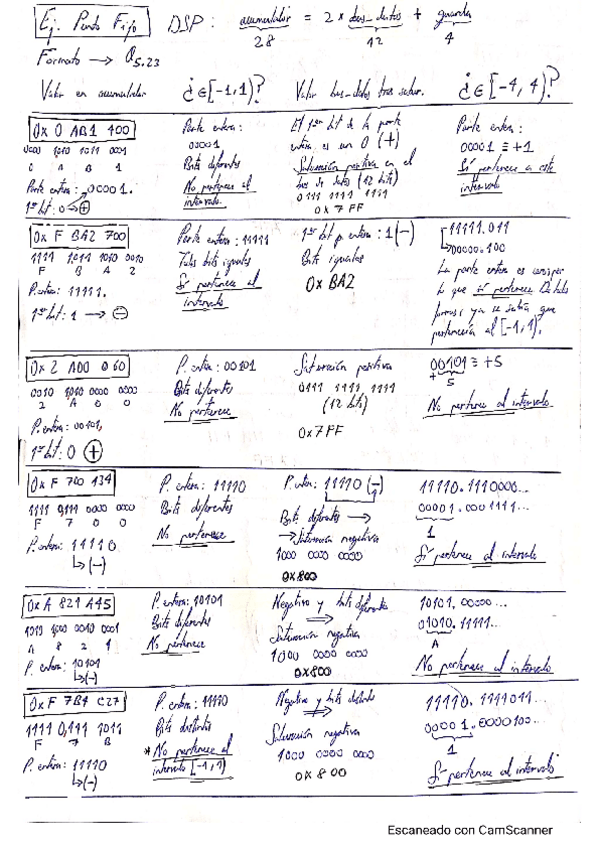 Ej. Punto Fijo DSP: acumulador = 2 × bus_datos + guarda
28 12 4
Formato → Q5.23
Valor en acumulador ¿∈[-1,1)? Valor bus_datos tras satur. ¿∈[-4,4)?
0x 0 AB1 400
0000 1010 1011 0001
0 A B 1
Parte entera: 00001.
1er bit: 0 → +
Parte entera:
00001
Bits diferentes
No pertenece al
intervalo
El 1er bit de la parte
entera es un 0 (+)
Saturación positiva en el
bus de datos (12 bits)
0111 1111 1111
0x 7FF
Parte entera:
00001 ≡ +1
Sí pertenece a este
intervalo
0x F BA2 700
1111 1011 1010 0010
F B A 2
P. entera: 11111.
1er bit: 1 → -
Parte entera: 11111
Todos bits iguales
Sí pertenece al
intervalo
1er bit p. entera: 1 (-)
Bits iguales
0x BA2
11111.011
00000.100
La parte entera es
lo que sí pertenece. De todas
formas, ya se sabía que
pertenecía al [-1,1).
0x 2 A00 060
0010 1010 0000 0000
2 A 0 0
P. entera: 00101,
1er bit: 0 +
P. entera: 00101
Bits diferentes
No pertenece
Saturación positiva
0111 1111 1111
(12 bits)
0x7FF
00101 ≡ +5
+ 5
No pertenece al intervalo
0x F 700 134
1111 0111 0000 0000
F 7 0 0
P. entera: 11110
↳(-)
P. entera: 11110
Bits diferentes
No pertenece
P. entera: 11110 (-)
Bits diferentes →
→ Saturación negativa
1000 0000 0000
0x800
11110.1110000...
00001.0001111...
1
Sí pertenece al intervalo
0x A 821 A45
1010 1000 0010 0001
A 8 2 1
P. entera: 10101
↳(-)
P. entera: 10101
Bits diferentes
No pertenece
Negativo y bits diferentes
⇒
Saturación negativa
1000 0000 0000
0x800
10101.00000...
01010.11111...
A
No pertenece al intervalo
0x F 7B4 C27
1111 0111 1011
F 7 B
P. entera: 11110
↳(-)
P. entera: 11110
Bits distintos
* No pertenece al
intervalo [-1,1)
Negativo y bits distintos
⇒
Saturación negativa
1000 0000 0000
0x 800
11110.1111011...
00001.0000100...
1
Sí pertenece al intervalo
Escaneado con CamScanner